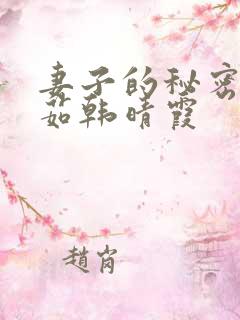 妻子的秘密
如韩晴霞
趙肖